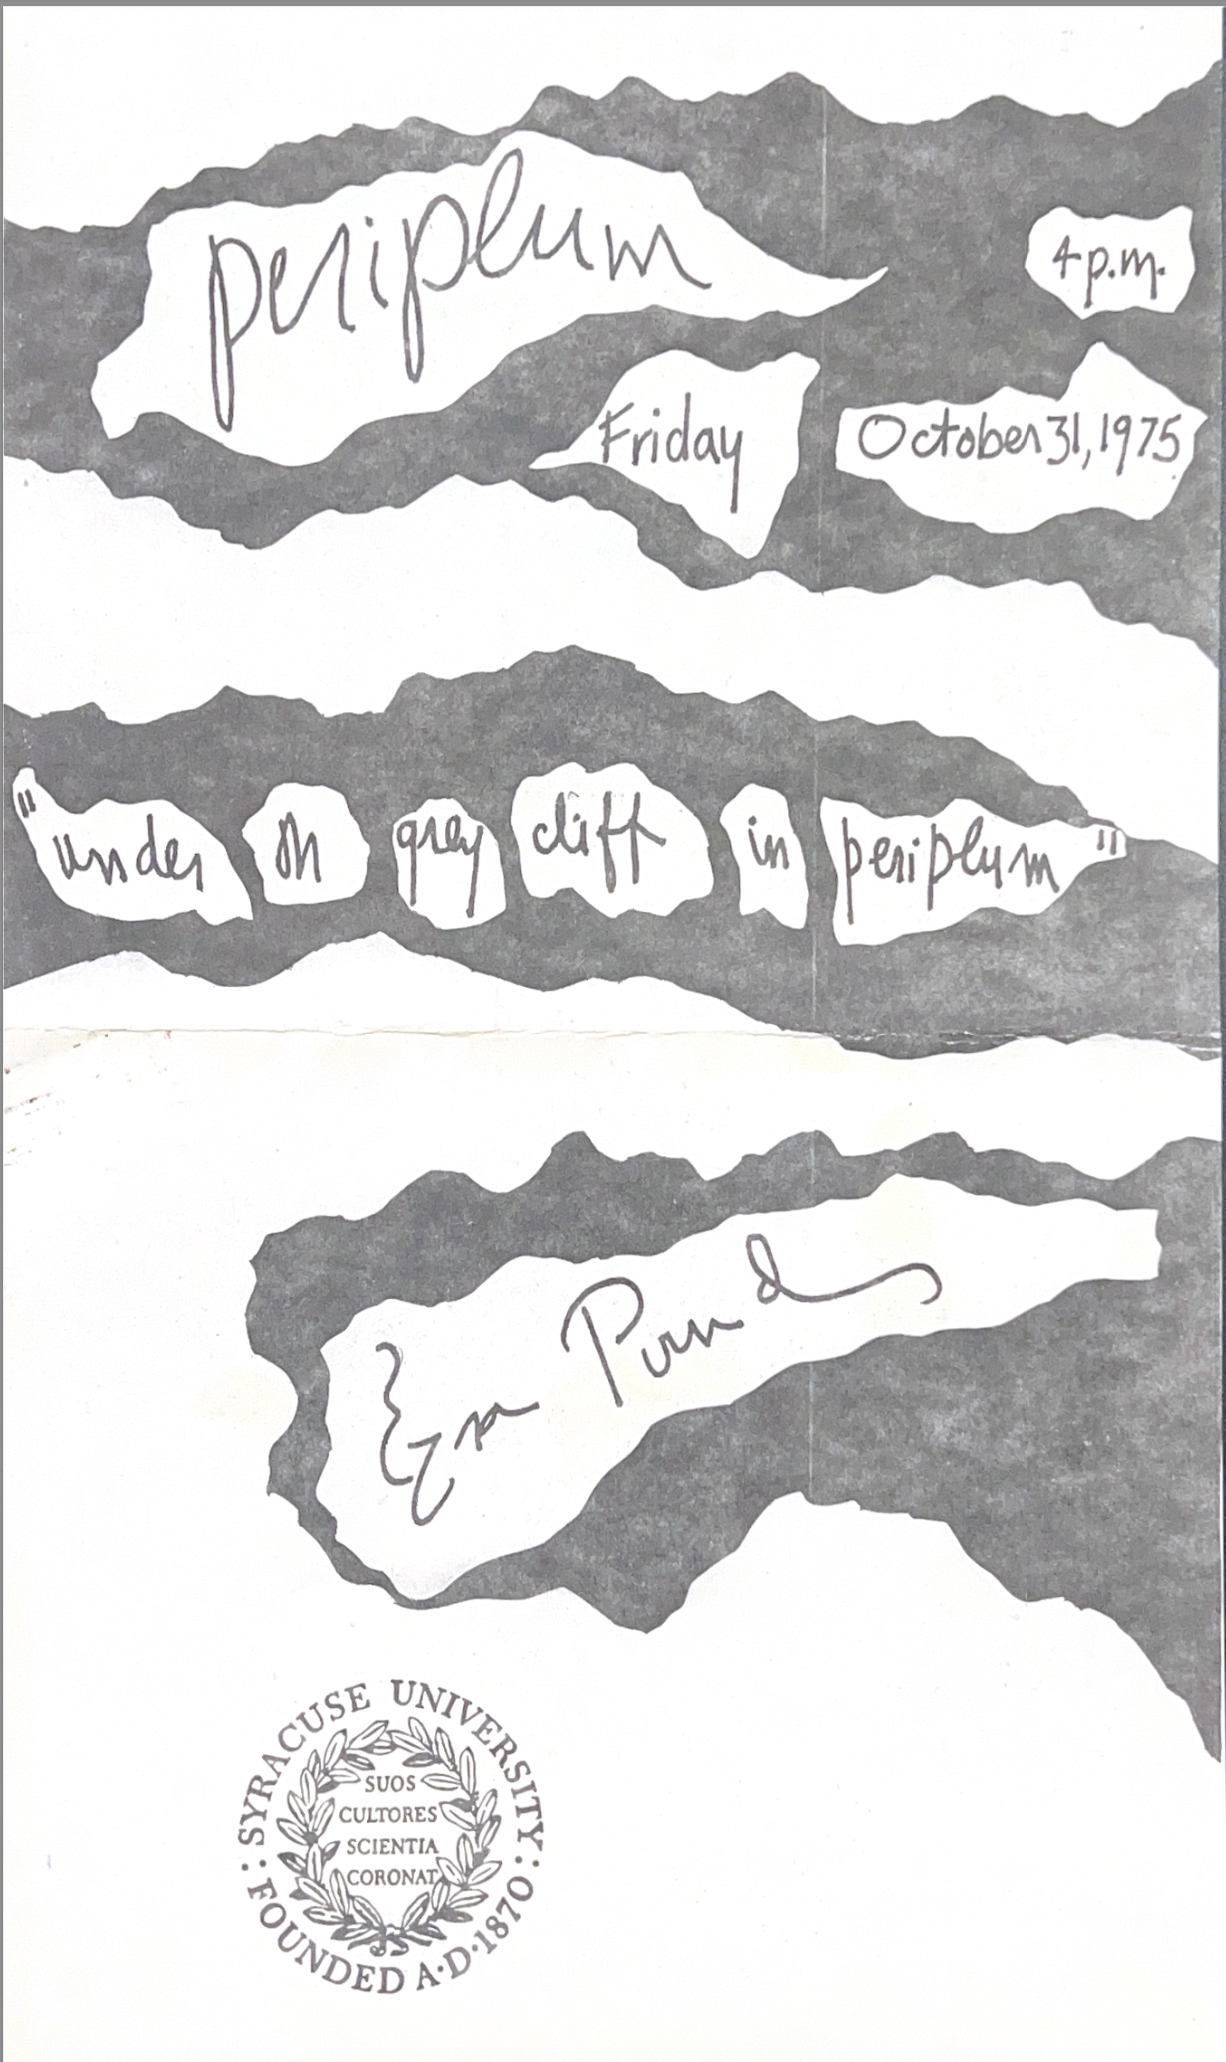 periplum
4 p.m.
Friday October 31, 1975
"under th grey cliff in periplum"
Ezra Pound
SYRACUSE UNIVERSITY
SUOS
CULTORES
SCIENTIA
CORONAT
FOUNDED A·D·1870